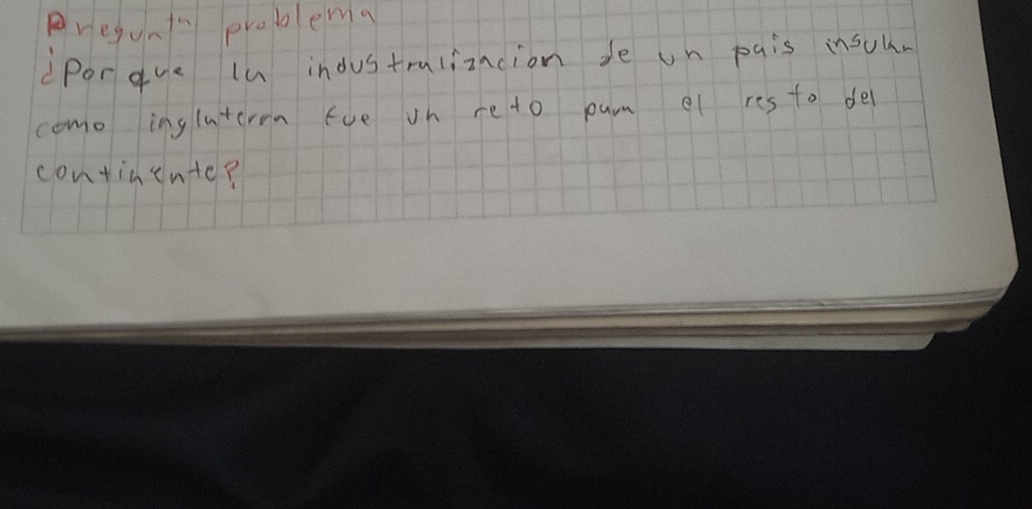 Pregunta problema
¿Por que la industralización de un pais insular
como inglaterra fue un reto para el resto del
continente?